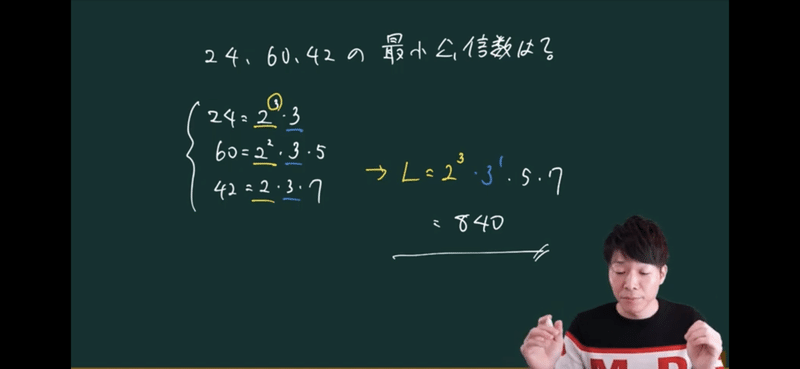 24、60、42の最小公倍数は?
24=2³・3
60=2²・3・5
42=2・3・7
→ L=2³・3¹・5・7
=840